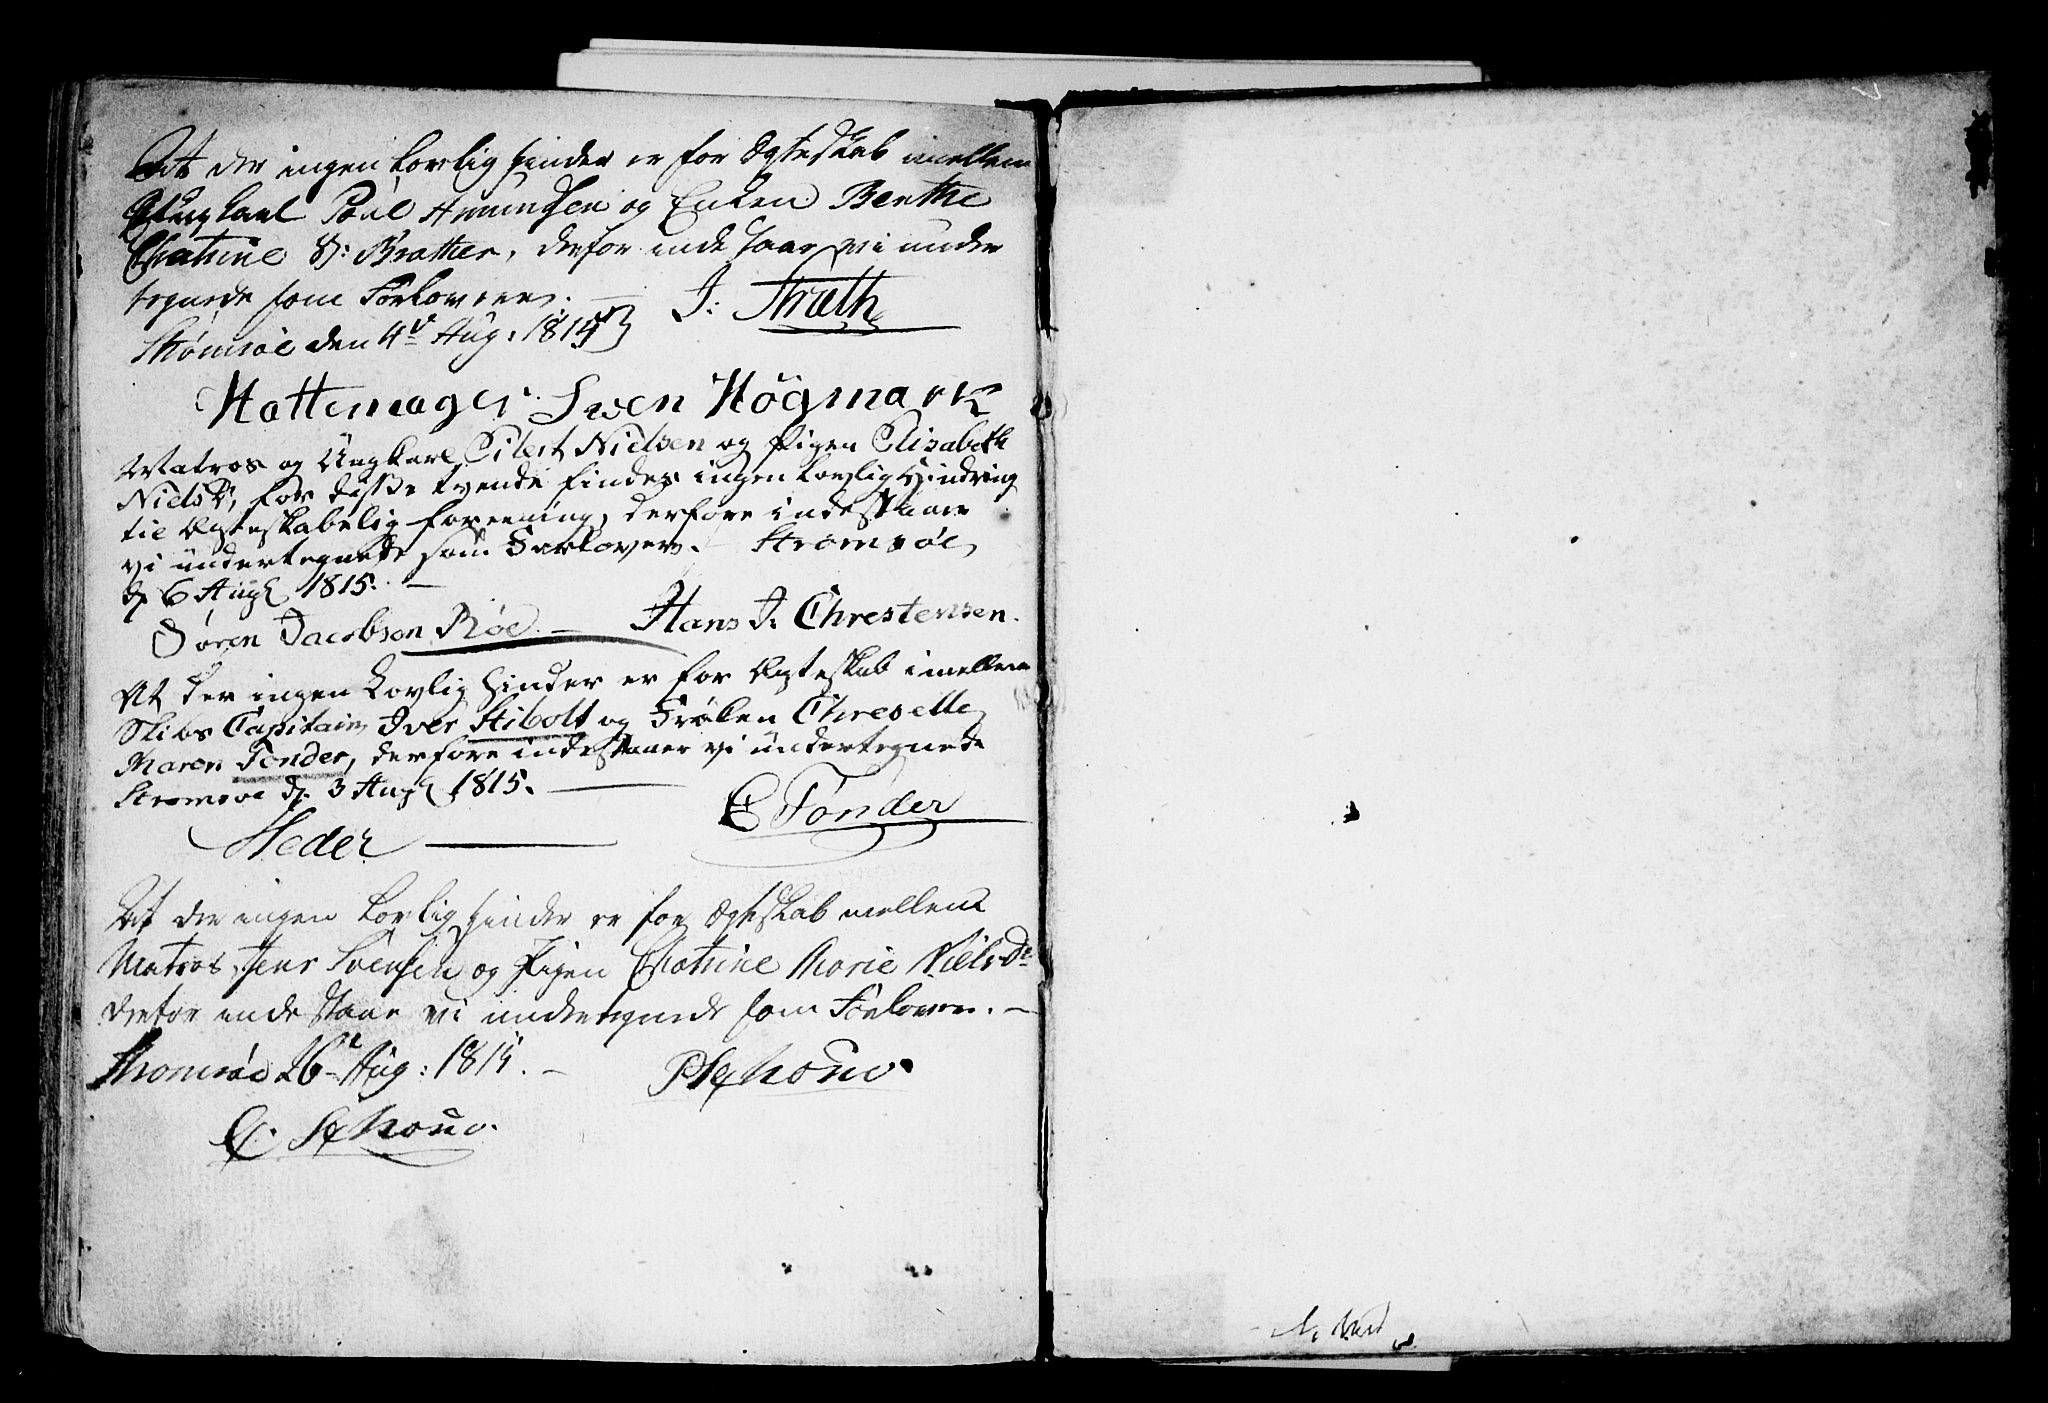 At der ingen Lovlig hinder er for Ægteskab imellem
Ungkarl Poul Amundsen og Enken Berthe
Chatrine D: Brather, derfor indestaar vi under
tegnede som Forlovere. —
Strømsøe den 4de Aug: 1815
J: Stræth
Hattemager Swen Högmark
Matros og Ungkarl Eilert Nielsen og Pigen Elisabeth
Niels Dr, for disse tvende findes ingen Lovlig Hindring
til Ægteskabelig forening, derfore indestaaer
vi undertegnede som Forlovere. Strømsøe
d 6 Augl 1815. —
Søren Jacobsen Röe. — Hans J. Chrestensen.
At der ingen Lovlig Hinder er for Ægteskab imellem
Skibs Capitain Iver Stibolt og Frølen Chreselle
Maren Tonder, derfore indestaaer vi undertegnede
Strømsøe d. 3 Augl 1815. —
C Tonder
Heder —
At der ingen Lovlig hinder er for Ægteskab mellem
Matros Jens Svensen og Pigen Chatrine Marie Niels Dr
derfor indestaar vi undertegnede som Forlovere. —
Strømsøe 26 Aug: 1815. —
P Schouw.
C. Schouw.